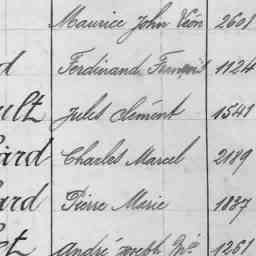 Maurice John Léon 2601
d Ferdinand François 1124
ult Jules Clément 1541
ard Charles Marcel 2189
ard Pierre Marie 1837
et André Joseph Mie 1261